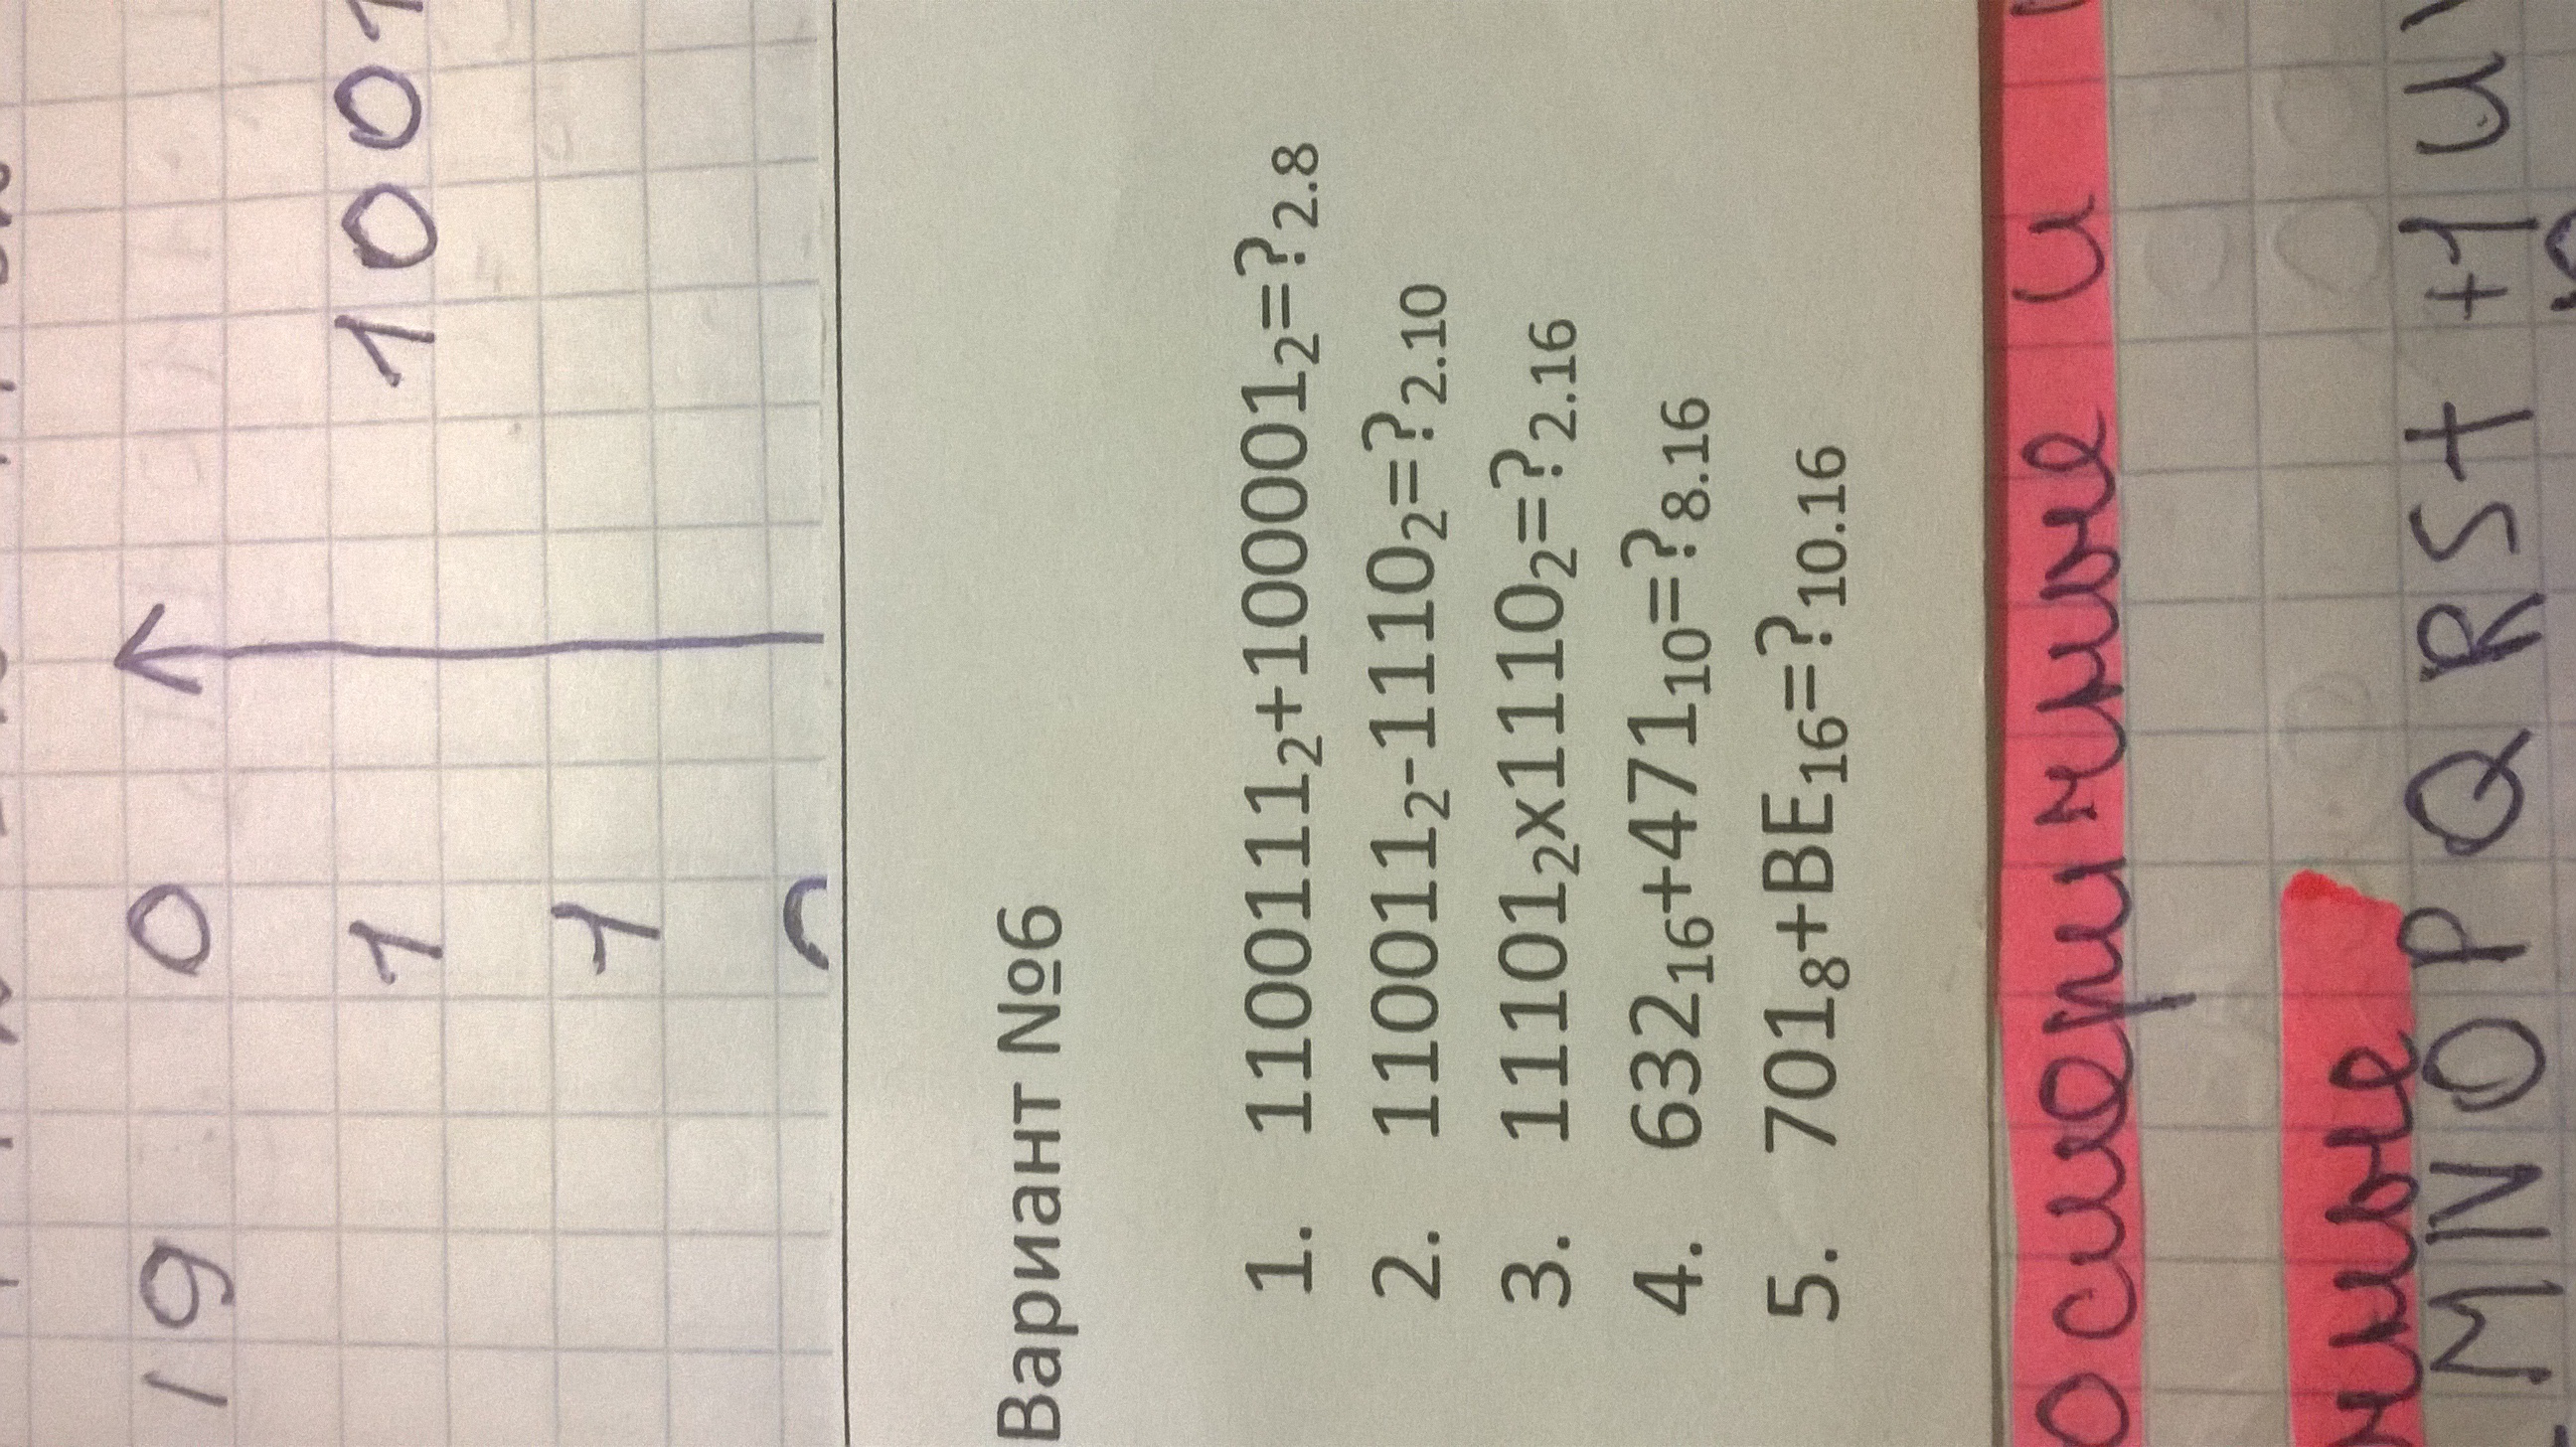 19 0
1 1001
1
Вариант №6
1. 1100111₂+100001₂=?₂.₈
2. 110011₂-11110₂=?₂.₁₀
3. 11101₂x1110₂=?₂.₁₆
4. 632₁₆+471₁₀=?₈.₁₆
5. 701₈+BE₁₆=?₁₀.₁₆
MNOPQRST +1